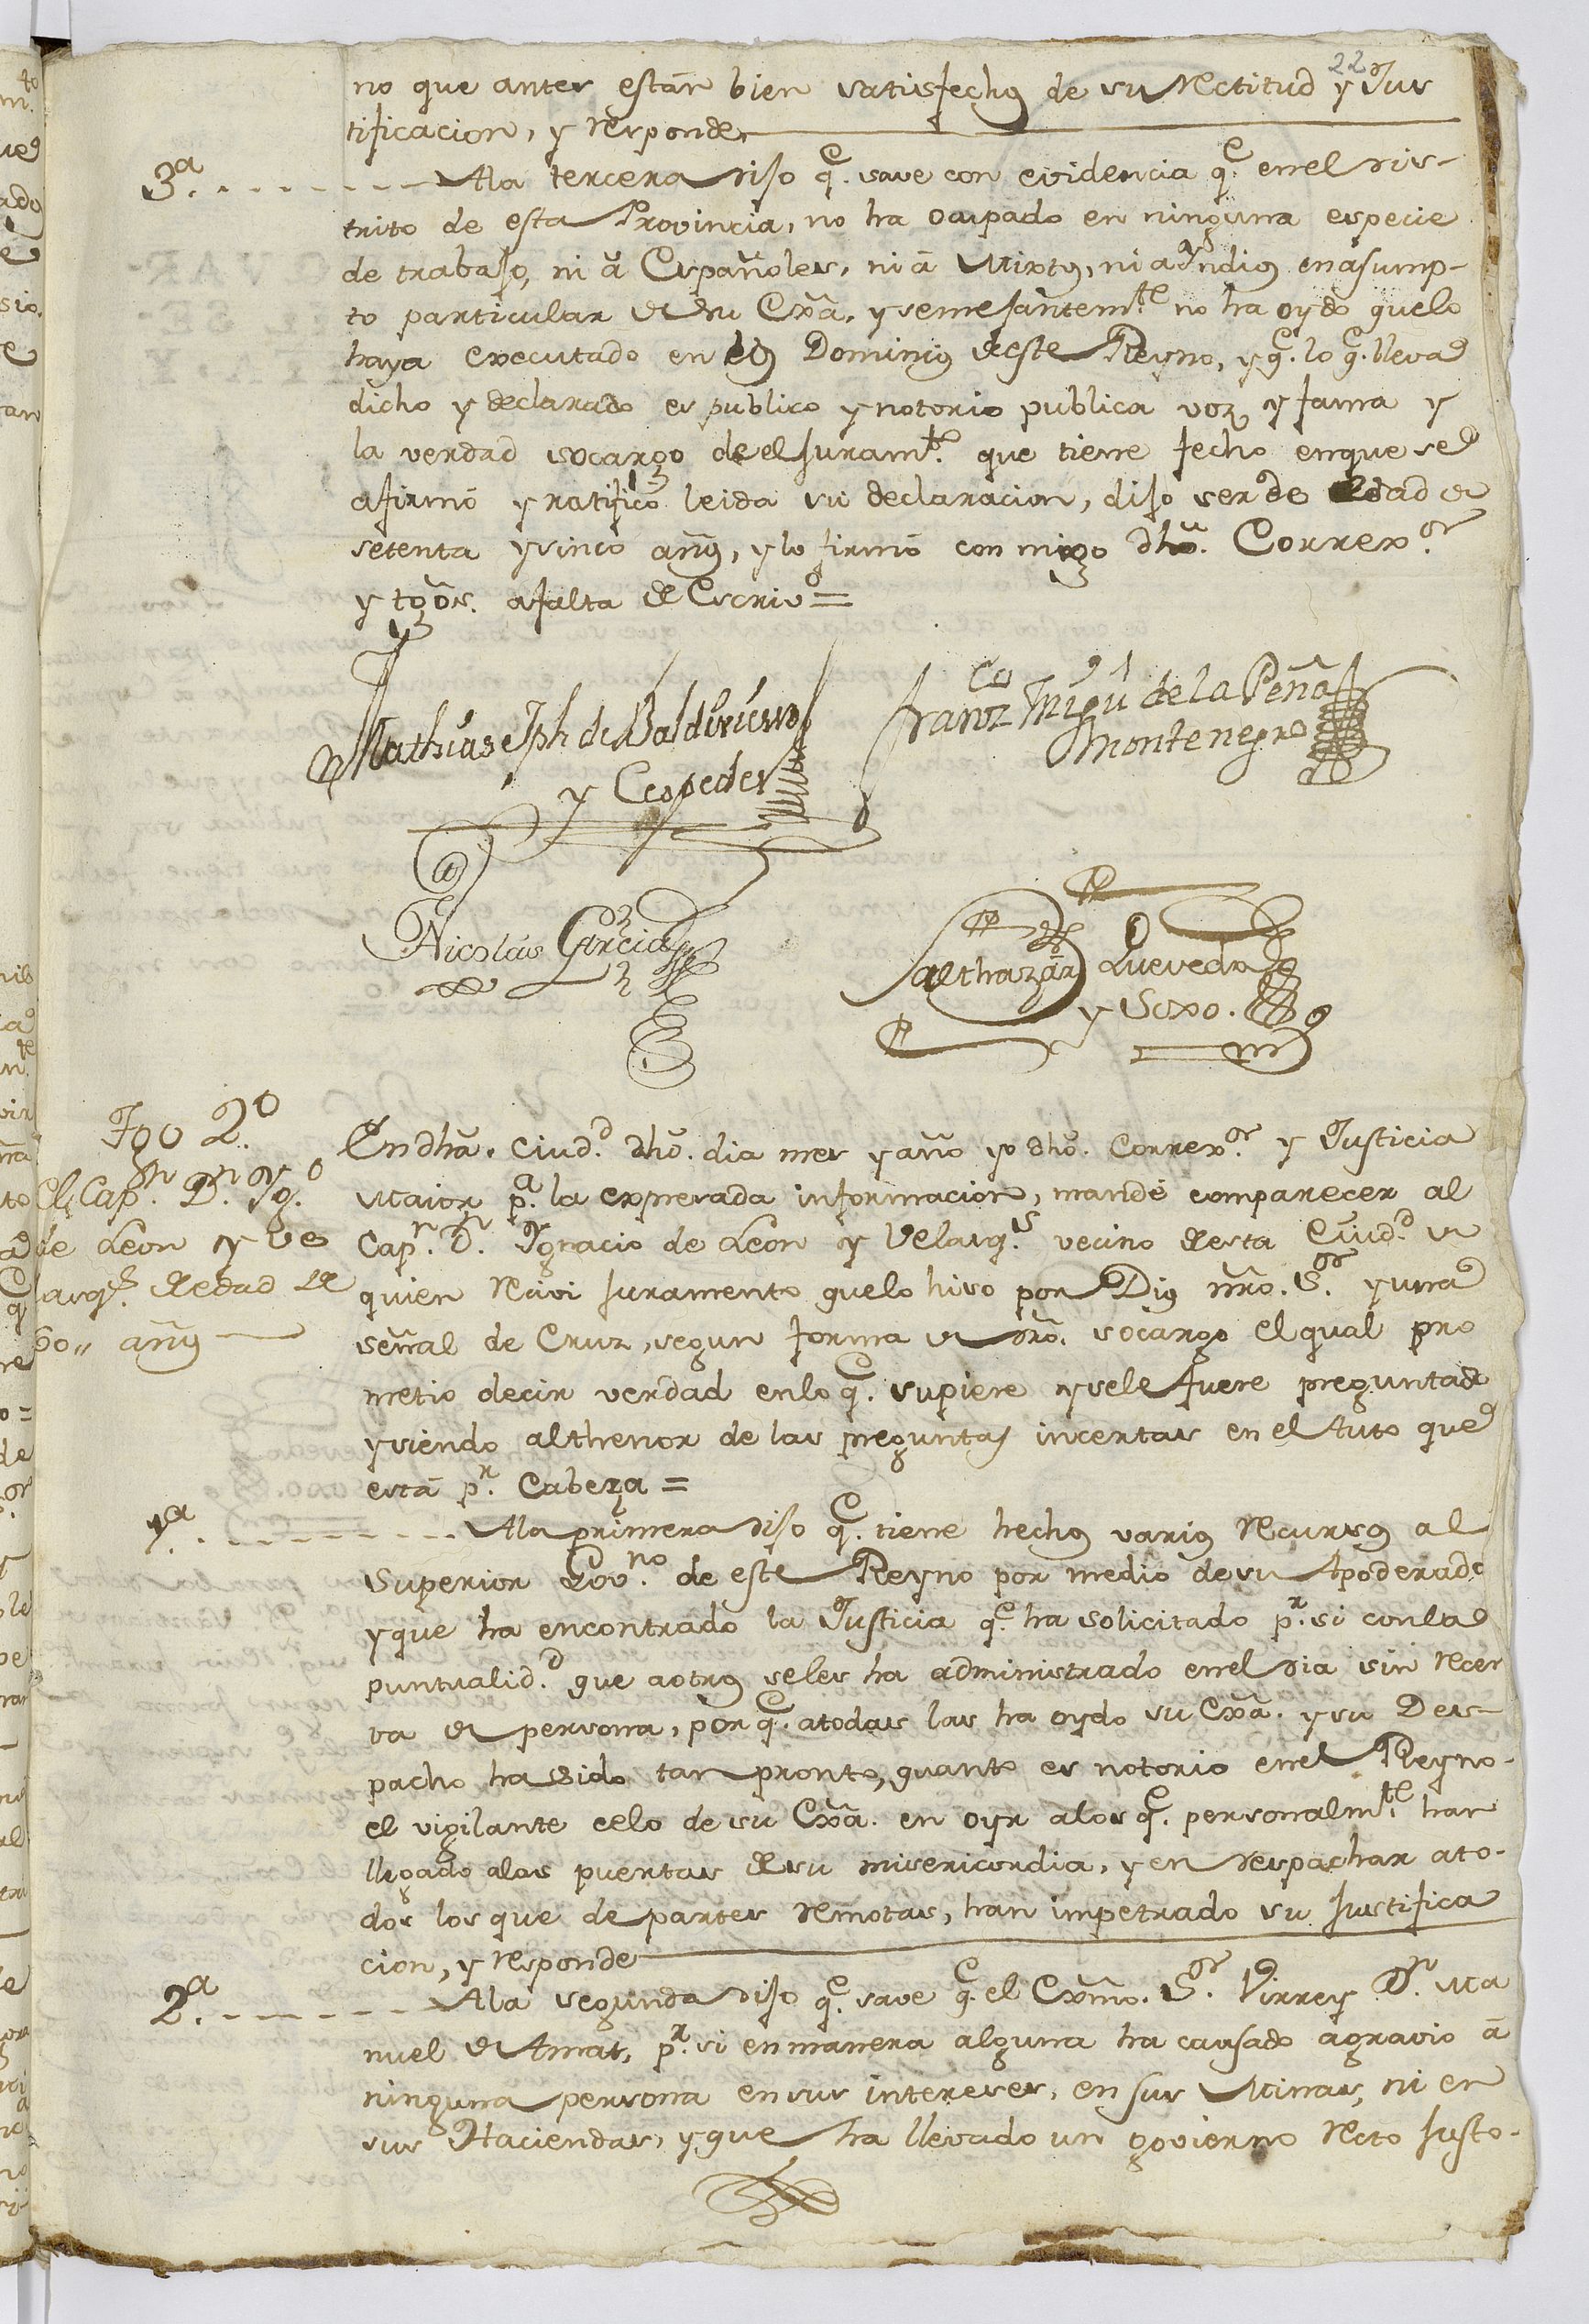 22
no que antes están bien satisfechos de su rectitud y Jus
tificacion, y responde
3ª. Ala tercera dijo q.e save con evidencia q.e enel dis-
trito de esta Provincia, no ha ocupado en ninguna especie
de trabajo, ni â Españoles, ni â Mixtos, ni a Yndios en asump-
to particular de su Exâ. y semejantem.te no ha oydo quelo
haya executado en los Dominios de este Reyno, y q.e lo q.e lleva
dicho y declarado es publico y notorio publica voz y fama y
la verdad socargo de el juram.to que tiene fecho enque se
afirmó y ratificó leida su declaracion, dijo ser de edad de
setenta y sinco años, y lo firmó con migo dhô. Correx.or
y tgôs. afalta de Escriv.o =
Mathias Jph de Baldivieso
y Cespedes
Fran.co Migu.l de la Peña
Montenegro
Nicolás Garcia
Balthazar Quevedo
y Soxo.
Tgo 2.o
El Cap.n D.n Yg.o
de Leon y Ve
lasq.s de edad de
60,, años
En dhâ. Ciud.d dhô. dia mes y año yo dhô. Correx.or y Justicia
Maior p.a la expresada informacion, mandé comparecer al
Cap.n D.n Ygnacio de Leon y Velasq.s vecino de esta Ciud.d de
quien recivi juramento quelo hiso por Dios nrô. S.or y una
señal de Cruz, segun forma de drô. socargo el qual pro
metio decir verdad enlo q.e supiere y sele fuere preguntado
y siendo althenor de las preguntas incertas en el Auto que
está p.r Cabeza =
1ª. Ala primera dijo q.e tiene hechos varios recursos al
Superior Gov.no de este Reyno por medio de su Apoderado
y que ha encontrado la Justicia q.e ha solicitado p.r si con la
puntualid.d que a otros seles ha administrado enel dia sin recer
va de persona, por q.e atodas las ha oydo su Exâ. y su Des-
pacho ha sido tan pronto, quanto es notorio enel Reyno.
el vigilante celo de su Exâ. en oyr alos q.e personalm.te han
llegado alas puertas de su misericordia, y en despachar ato-
dos los que de partes remotas, han impetrado su justifica
cion, y responde
2ª. Ala segunda dijo q.e save q.e el Exmô. S.or Virrey D.n Ma
nuel de Amat, p.r si en manera alguna ha causado agravio â
ninguna persona en sus intereses, en sus Minas, ni en
sus Haciendas, y que ha llevado un govierno recto justo-